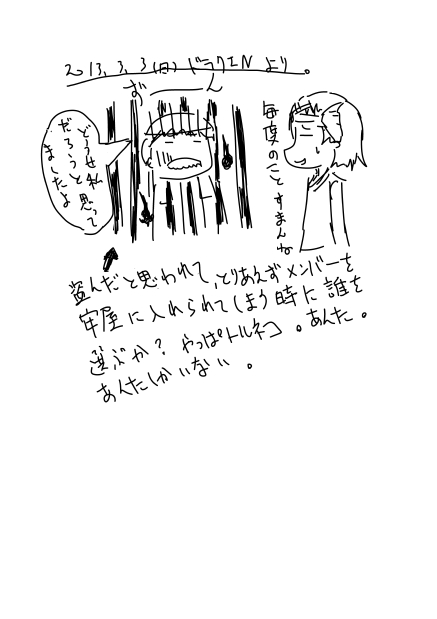 2013.3.3(日)ドラクエNより。
ず――ん
どうせ私
だろうと思って
ましたよ…
毎度のことすまんね
盗んだと思われて、とりあえずメンバーを
牢屋に入れられてしまう時に誰を
選ぶか？やっぱトルネコ。あんた。
あんたしかいない。